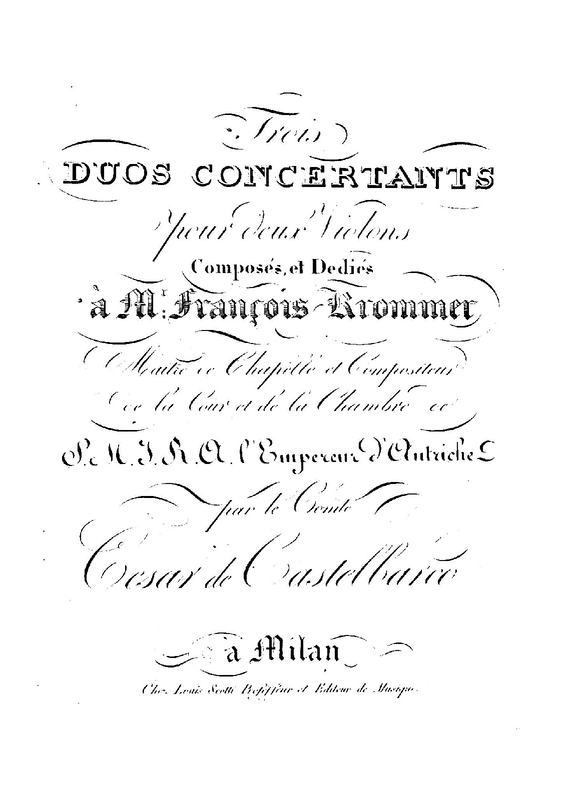 Trois
DUOS CONCERTANTS
pour deux Violons
Composés, et Dediés
à Mr. François Krommer
Maitre de Chapelle et Compositeur
de la Cour et de la Chambre de
S. M. I. R. A. l'Empereur d'Autriche
par le Comte
Cesar de Castelbarco
à Milan
Chez Louis Scotti Professeur et Editeur de Musique.